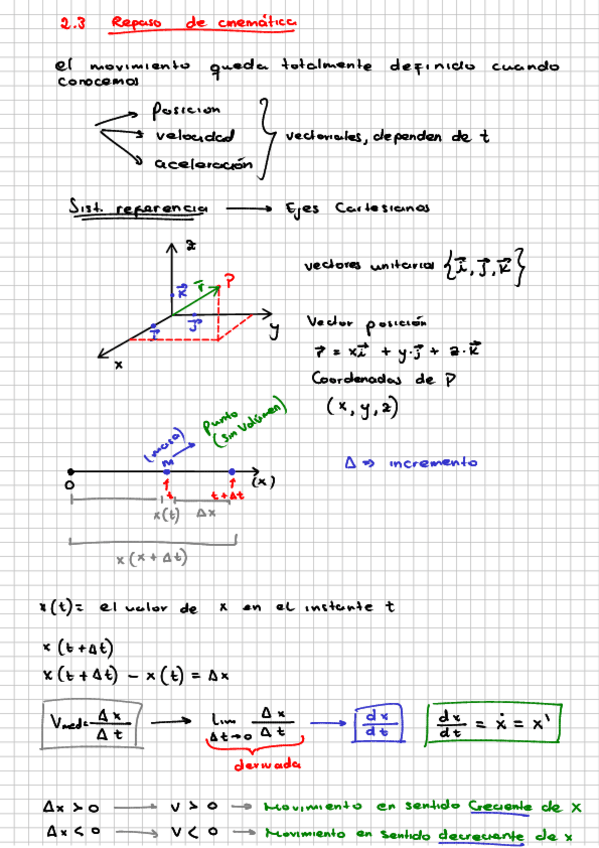 2.3 Repaso de cinemática
el movimiento queda totalmente definido cuando
conocemos
Posicion
velocidad
aceleración
vectoriales, dependen de t
Sist. referencia → Ejes Cartesianos
z
k⃗ r⃗ P
i⃗ j⃗ y
x
vectores unitarios {i⃗, j⃗, k⃗}
Vector posición
r⃗ = xi⃗ + y·j⃗ + z·k⃗
Coordenadas de P
(x, y, z)
(masa) Punto
(sin Volúmen)
m
0 t t+Δt (x)
x(t) Δx
x(x+Δt)
Δ => incremento
x(t) = el valor de x en el instante t
x(t+Δt)
x(t+Δt) - x(t) = Δx
Vmed = Δx/Δt → Lim Δt→0 Δx/Δt → dx/dt dx/dt = ẋ = x'
derivada
Δx > 0 → v > 0 → Movimiento en sentido Creciente de x
Δx < 0 → v < 0 → Movimiento en sentido decreciente de x